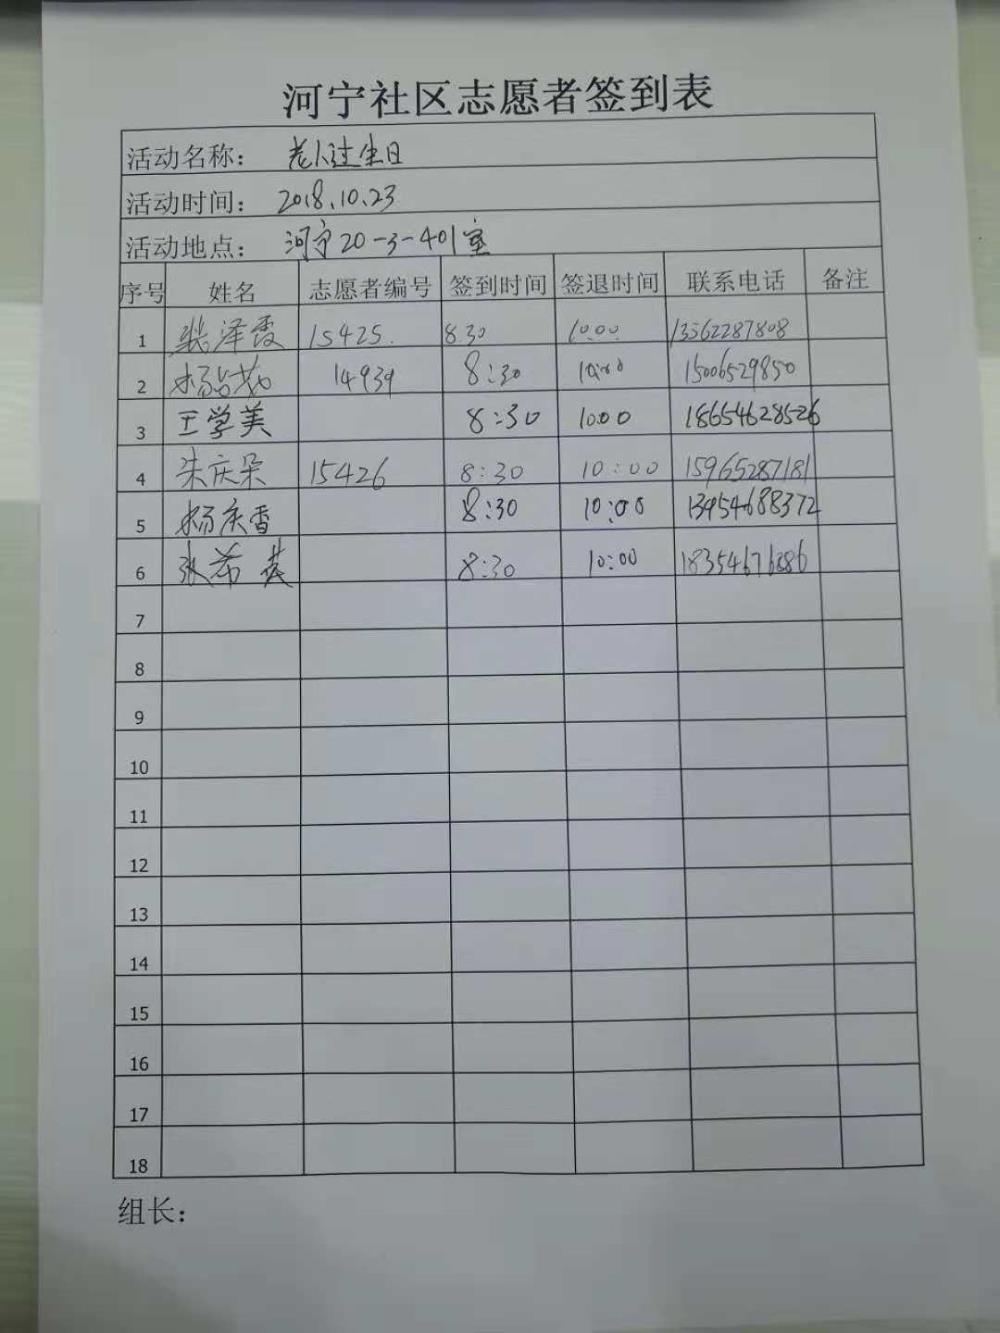 河宁社区志愿者签到表
活动名称： 老人过生日
活动时间： 2018.10.23
活动地点： 河宁20-3-401室
序号 姓名 志愿者编号 签到时间 签退时间 联系电话 备注
1 张泽霞 15425. 8.30 10:00 13562287808
2 杨 14939 8:30 10:00 15006529850
3 王学美 8:30 10:00 18654628526
4 朱庆朵 15426 8:30 10:00 15965287181
5 杨庆香 8:30 10:00 13954688372
6 张希英 8:30 10:00
7
8
9
10
11
12
13
14
15
16
17
18
组长：